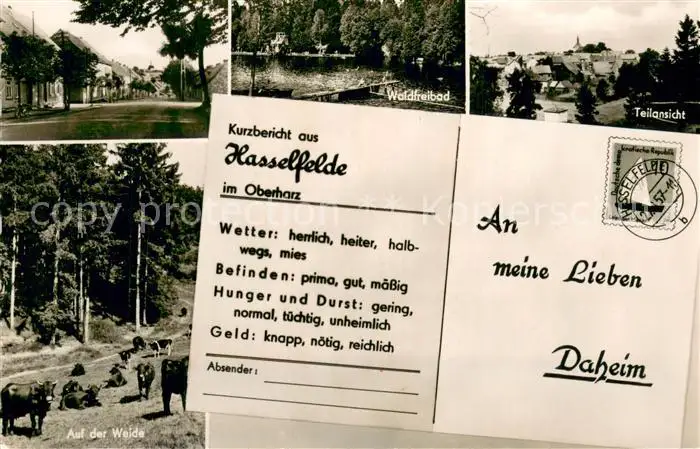 Waldfreibad
Teilansicht
Kurzbericht aus
Hasselfelde
im Oberharz
Wetter: herrlich, heiter, halb-
wegs, mies
Befinden: prima, gut, mäßig
Hunger und Durst: gering,
normal, tüchtig, unheimlich
Geld: knapp, nötig, reichlich
Absender:
An
meine Lieben
Daheim
HASSELFELDE
b
Auf der Weide
copyright